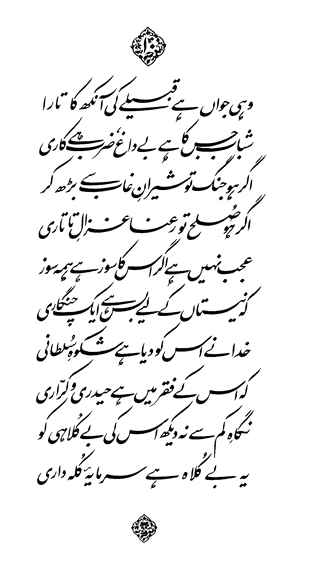 وہی جواں ہے قبیلے کی آنکھ کا تارا
شباب جس کا ہے بے داغ، ضرب ہے کاری
اگر ہو جنگ تو شیرانِ غاب سے بڑھ کر
اگر ہو صُلح تو رعنا غزالِ تاتاری
عجب نہیں ہے اگر اس کا سوز ہے ہمہ سوز
کہ نیستاں کے لیے بس ہے ایک چنگاری
خدا نے اس کو دیا ہے شکوہِ سُلطانی
کہ اس کے فقر میں ہے حیدری و کرّاری
نگاہِ کم سے نہ دیکھ اس کی بے کلاہی کو
یہ بے کُلاہ ہے سرمایۂ کُلہ داری